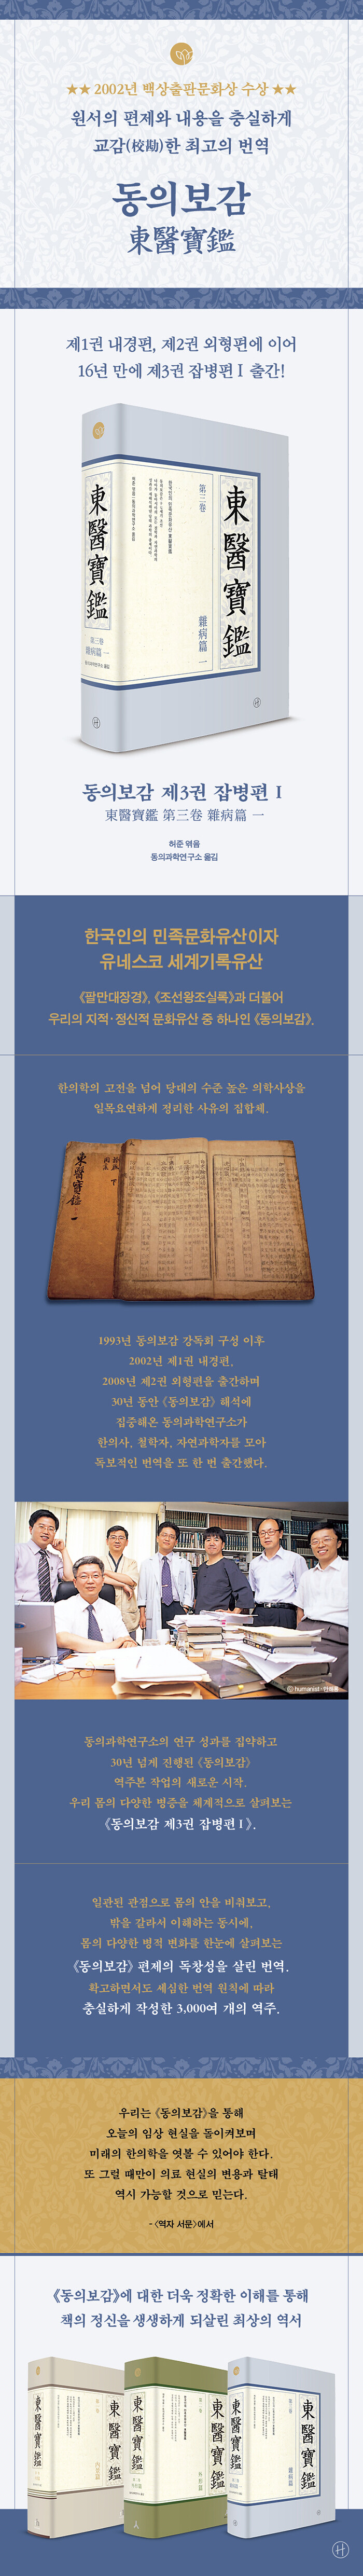 ★★ 2002년 백상출판문화상 수상 ★★
원서의 편제와 내용을 충실하게
교감(校勘)한 최고의 번역
동의보감
東醫寶鑑
제1권 내경편, 제2권 외형편에 이어
16년 만에 제3권 잡병편 I 출간!
東醫寶鑑
第三卷
雜病篇 一
東醫寶鑑
第三卷
雜病篇 一
H
H
동의보감 제3권 잡병편 I
東醫寶鑑 第三卷 雜病篇 一
허준 엮음
동의과학연구소 옮김
한국인의 민족문화유산이자
유네스코 세계기록유산
《팔만대장경》, 《조선왕조실록》과 더불어
우리의 지적·정신적 문화유산 중 하나인 《동의보감》.
한의학의 고전을 넘어 당대의 수준 높은 의학사상을
일목요연하게 정리한 사유의 집합체.
東醫寶鑑 一
1993년 동의보감 강독회 구성 이후
2002년 제1권 내경편,
2008년 제2권 외형편을 출간하며
30년 동안 《동의보감》 해석에
집중해온 동의과학연구소가
한의사, 철학자, 자연과학자를 모아
독보적인 번역을 또 한 번 출간했다.
ⓒ humanist
동의과학연구소의 연구 성과를 집약하고
30년 넘게 진행된 《동의보감》
역주본 작업의 새로운 시작.
우리 몸의 다양한 병증을 체계적으로 살펴보는
《동의보감 제3권 잡병편 I》.
일관된 관점으로 몸의 안을 비춰보고,
밖을 갈라서 이해하는 동시에,
몸의 다양한 병적 변화를 한눈에 살펴보는
《동의보감》 편제의 독창성을 살린 번역.
확고하면서도 세심한 번역 원칙에 따라
충실하게 작성한 3,000여 개의 역주.
우리는 《동의보감》을 통해
오늘의 임상 현실을 돌이켜보며
미래의 한의학을 엿볼 수 있어야 한다.
또 그럴 때만이 의료 현실의 변용과 탈태
역시 가능할 것으로 믿는다.
- 〈역자 서문〉에서
《동의보감》에 대한 더욱 정확한 이해를 통해
책의 정신을 생생하게 되살린 최상의 역서
東醫寶鑑
東醫寶鑑
東醫寶鑑
東醫寶鑑
東醫寶鑑
東醫寶鑑
H